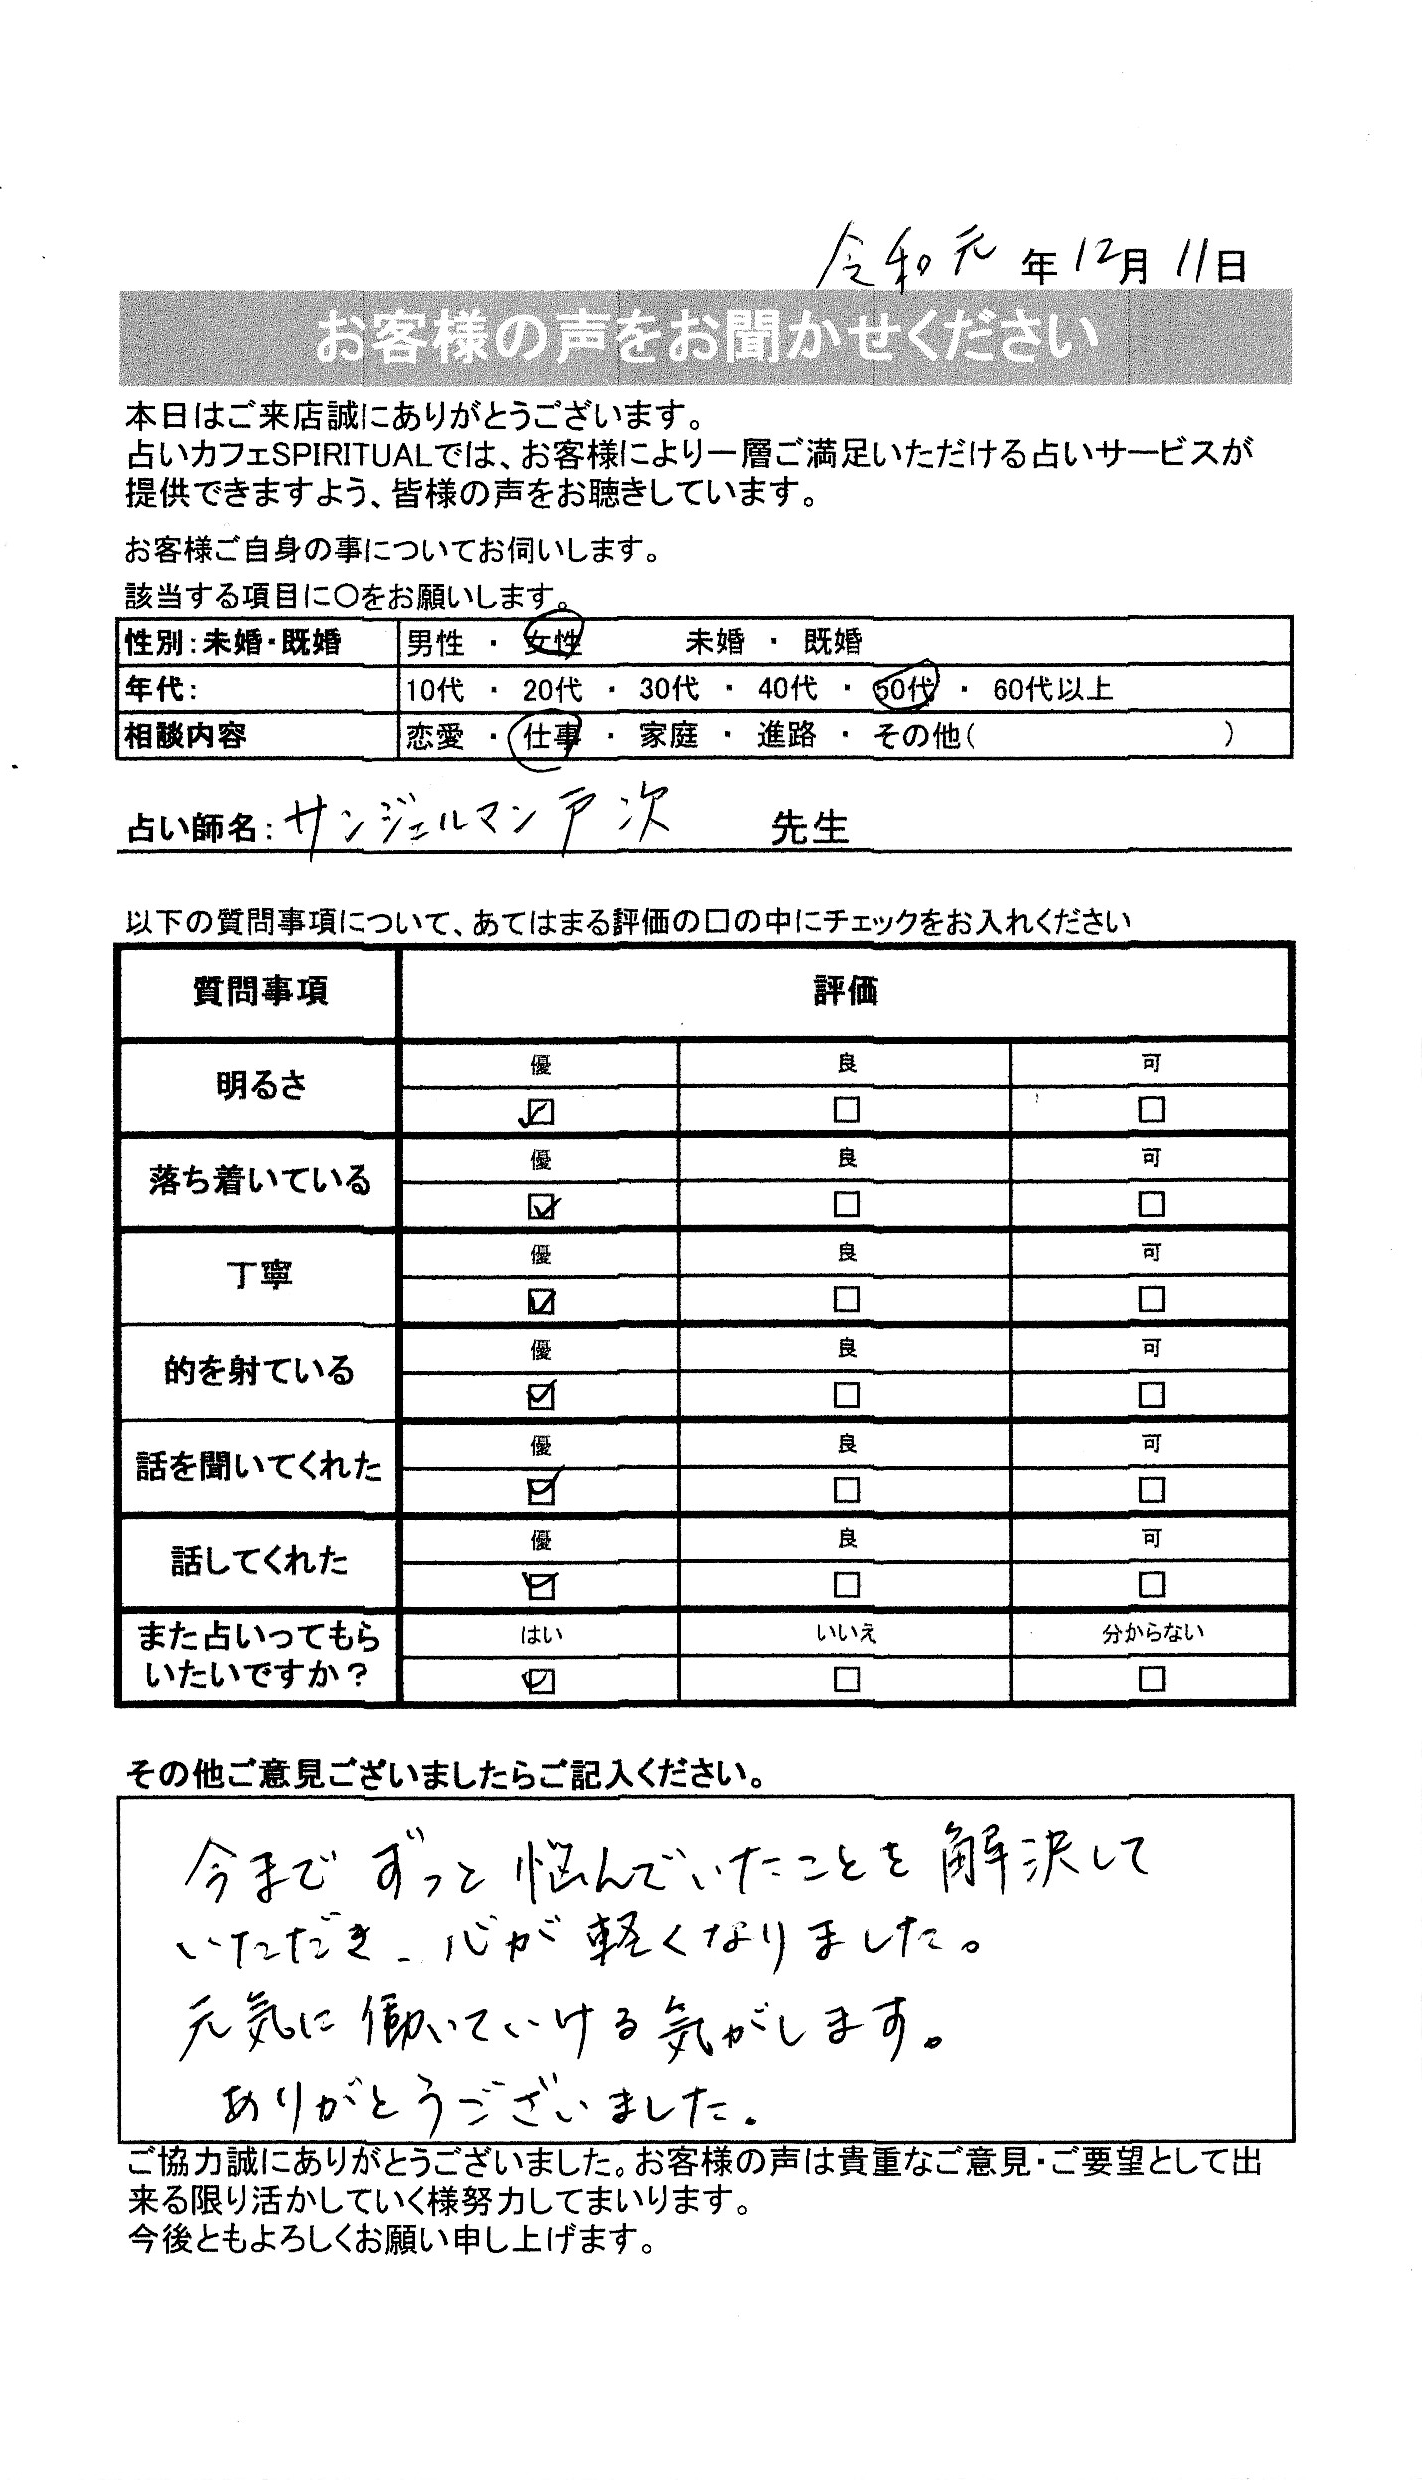 令和元年12月11日
お客様の声をお聞かせください
本日はご来店誠にありがとうございます。
占いカフェSPIRITUALでは、お客様により一層ご満足いただける占いサービスが
提供できますよう、皆様の声をお聴きしています。
お客様ご自身の事についてお伺いします。
該当する項目に○をお願いします。
性別：未婚・既婚 男性 ・ 女性 未婚 ・ 既婚
年代： 10代 ・ 20代 ・ 30代 ・ 40代 ・ 50代 ・ 60代以上
相談内容 恋愛 ・ 仕事 ・ 家庭 ・ 進路 ・ その他（ ）
占い師名： サンジェルマン戸次 先生
以下の質問事項について、あてはまる評価の口の中にチェックをお入れください
質問事項 評価
明るさ 優 良 可
☑ □ □
落ち着いている 優 良 可
☑ □ □
丁寧 優 良 可
☑ □ □
的を射ている 優 良 可
☑ □ □
話を聞いてくれた 優 良 可
☑ □ □
話してくれた 優 良 可
☑ □ □
また占いってもら はい いいえ 分からない
いたいですか？ ☑ □ □
その他ご意見ございましたらご記入ください。
今までずっと悩んでいたことを解決して
いただき、心が軽くなりました。
元気に働いていける気がします。
ありがとうございました。
ご協力誠にありがとうございました。お客様の声は貴重なご意見・ご要望として出
来る限り活かしていく様努力してまいります。
今後ともよろしくお願い申し上げます。